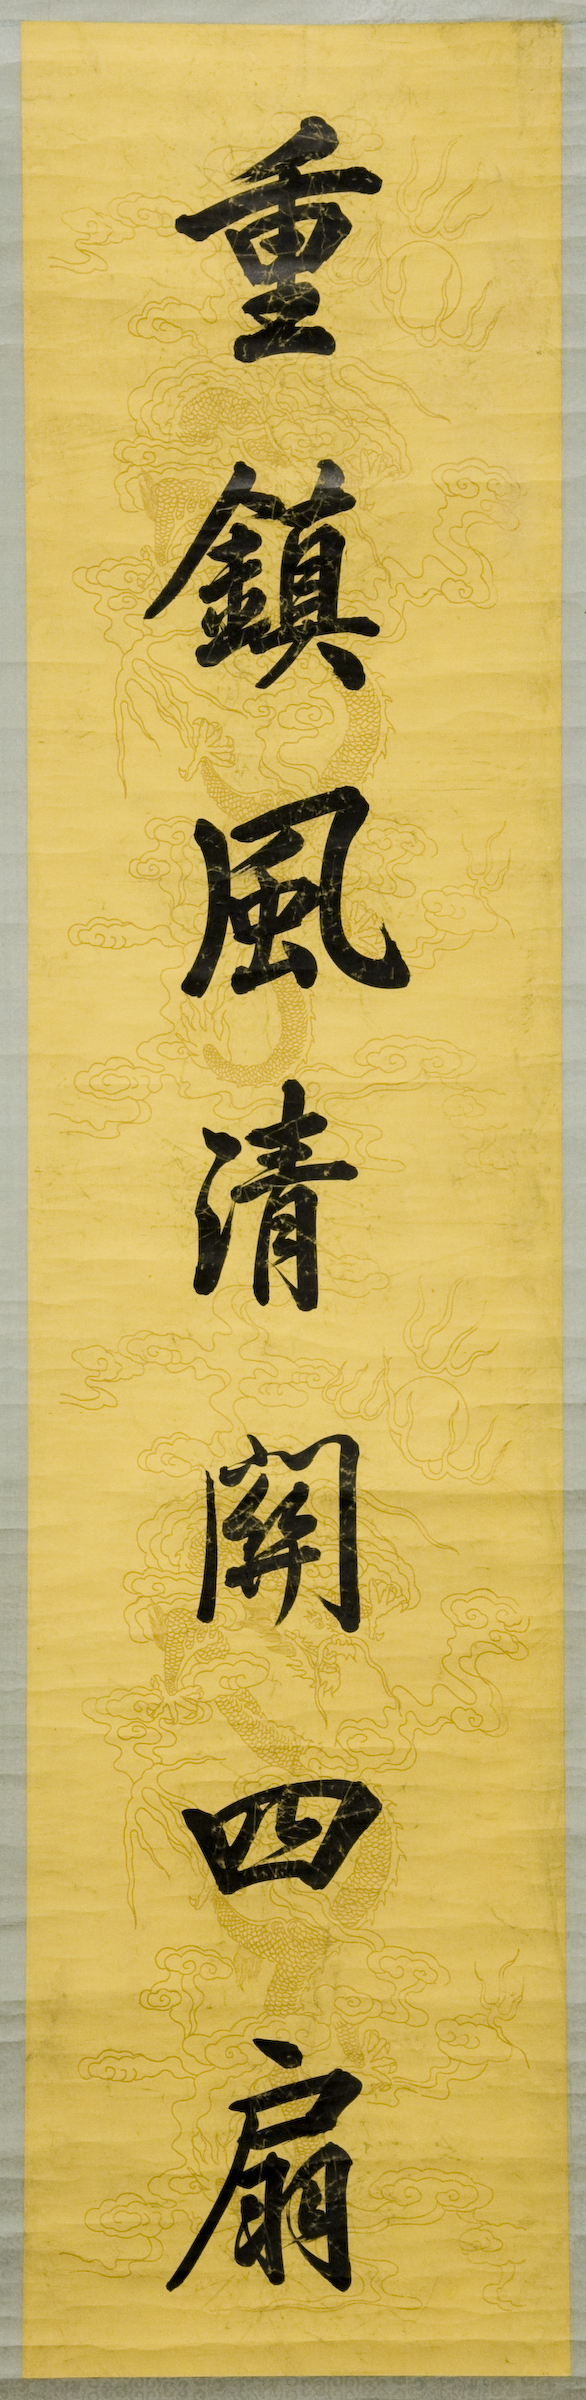 重鎮風清關四扇